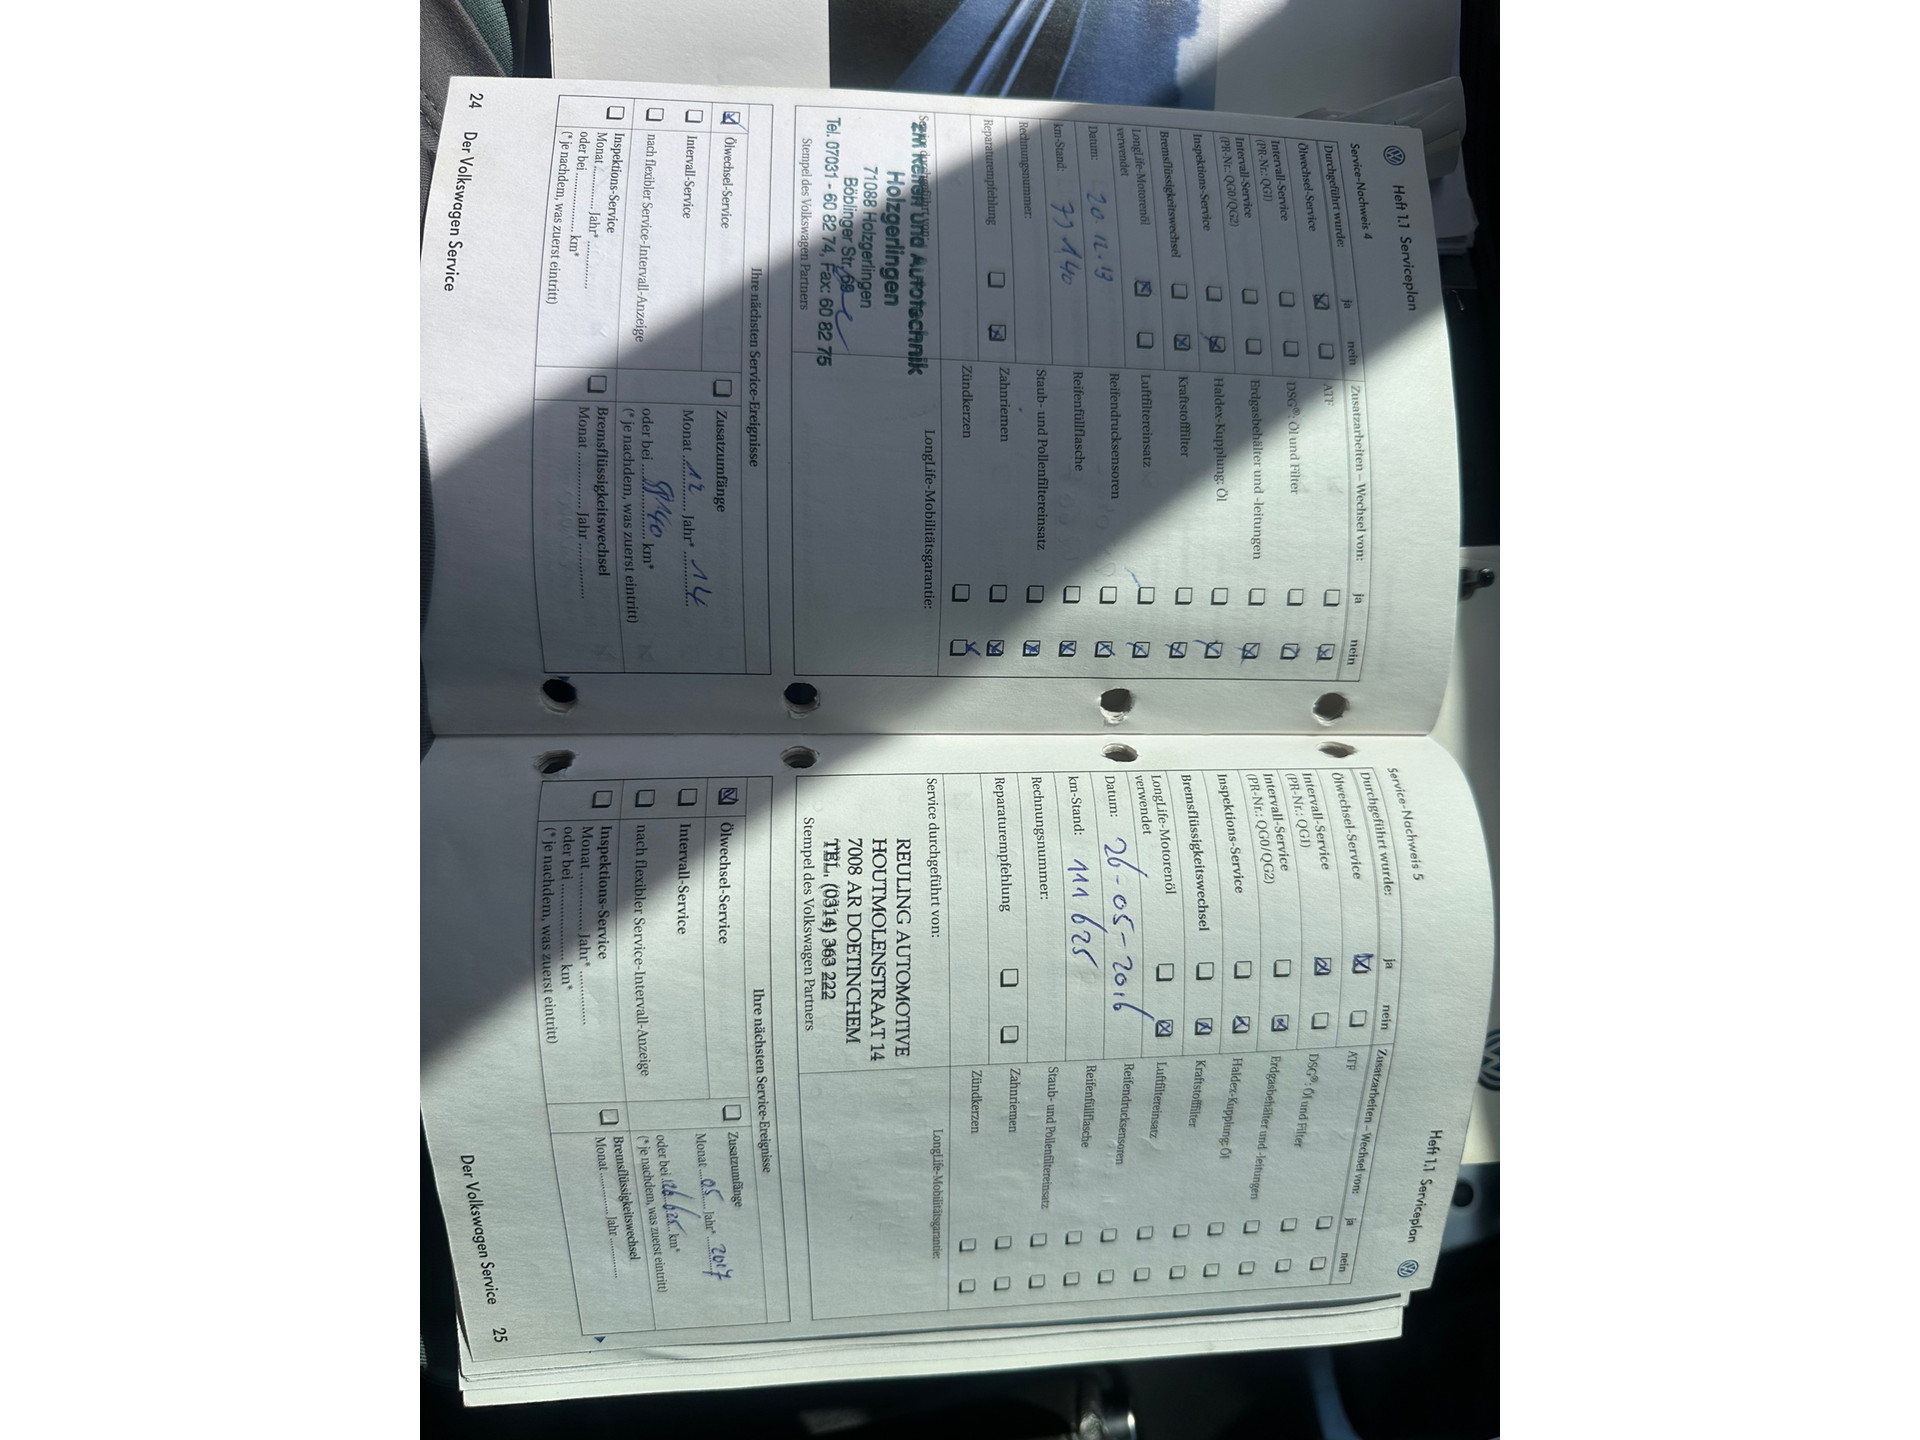 Heft 1.1 Serviceplan
Service-Nachweis 4
Durchgeführt wurde: ja nein
Ölwechsel-Service
Intervall-Service
(PR-Nr.: QG1)
Intervall-Service
(PR-Nr.: QG0/QG2)
Inspektions-Service
Bremsflüssigkeitswechsel
LongLife-Motorenöl
verwendet
Datum: 20.12.13
km-Stand: 73140
Rechnungsnummer:
Reparaturempfehlung
Zusatzarbeiten – Wechsel von: ja nein
ATF
DSG®: Öl und Filter
Erdgasbehälter und -leitungen
Haldex-Kupplung: Öl
Kraftstofffilter
Luftfiltereinsatz
Reifendrucksensoren
Reifenfüllflasche
Staub- und Pollenfiltereinsatz
Zahnriemen
Zündkerzen
LongLife-Mobilitätsgarantie:
Reifen und Autotechnik
Holzgerlingen
71088 Holzgerlingen
Böblinger Str. 68
Tel. 07031 - 60 82 74, Fax: 60 82 75
Stempel des Volkswagen Partners
Ihre nächsten Service-Ereignisse
Ölwechsel-Service
Intervall-Service
nach flexibler Service-Intervall-Anzeige
Inspektions-Service
Monat ............ Jahr* ............
oder bei ............ km*
(* je nachdem, was zuerst eintritt)
Zusatzumfänge
Monat 12 Jahr* 14
oder bei km*
(* je nachdem, was zuerst eintritt)
Bremsflüssigkeitswechsel
Monat ............ Jahr ............
24 Der Volkswagen Service
Heft 1.1 Serviceplan
Service-Nachweis 5
Durchgeführt wurde: ja nein
Ölwechsel-Service
Intervall-Service
(PR-Nr.: QG1)
Intervall-Service
(PR-Nr.: QG0/QG2)
Inspektions-Service
Bremsflüssigkeitswechsel
LongLife-Motorenöl
verwendet
Datum: 26-05-2016
km-Stand: 111625
Rechnungsnummer:
Reparaturempfehlung
Zusatzarbeiten – Wechsel von: ja nein
ATF
DSG®: Öl und Filter
Erdgasbehälter und -leitungen
Haldex-Kupplung: Öl
Kraftstofffilter
Luftfiltereinsatz
Reifendrucksensoren
Reifenfüllflasche
Staub- und Pollenfiltereinsatz
Zahnriemen
Zündkerzen
Service durchgeführt von:
LongLife-Mobilitätsgarantie:
REULING AUTOMOTIVE
HOUTMOLENSTRAAT 14
7008 AR DOETINCHEM
TEL. (0314) 363 222
Stempel des Volkswagen Partners
Ihre nächsten Service-Ereignisse
Ölwechsel-Service
Intervall-Service
nach flexibler Service-Intervall-Anzeige
Inspektions-Service
Monat ............ Jahr* ............
oder bei ............ km*
(* je nachdem, was zuerst eintritt)
Zusatzumfänge
Monat 05 Jahr* 2017
oder bei 126625 km*
(* je nachdem, was zuerst eintritt)
Bremsflüssigkeitswechsel
Monat ............ Jahr ............
Der Volkswagen Service 25